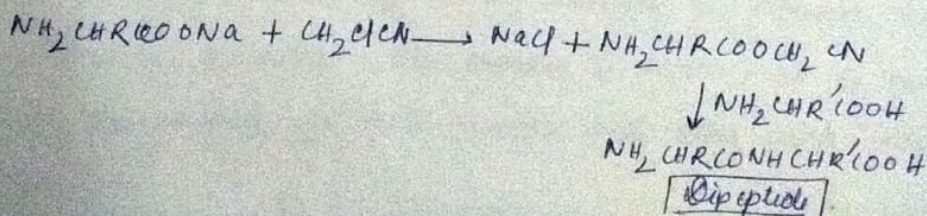 NH₂CHRCOONa + CH₂ClCN → NaCl + NH₂CHRCOOCH₂CN
↓ NH₂CHR'COOH
NH₂CHRCONHCHR'COOH
Dipeptide